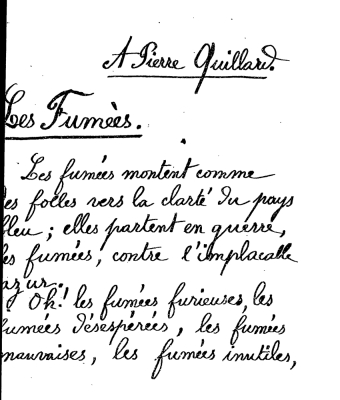 A Pierre Quillard.
Les Fumées.
Les fumées montent comme
les folles vers la clarté du pays
bleu ; elles partent en guerre,
les fumées, contre l'implacable
azur.
Oh! les fumées furieuses, les
fumées désespérées, les fumées
mauvaises, les fumées inutiles,